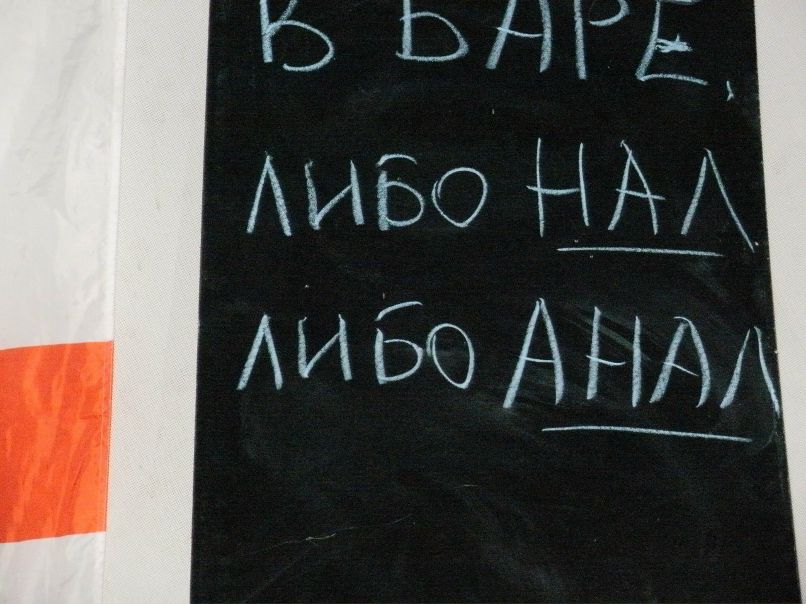 В БАРЕ,
ЛИБО НАЛ
ЛИБО АНАЛ